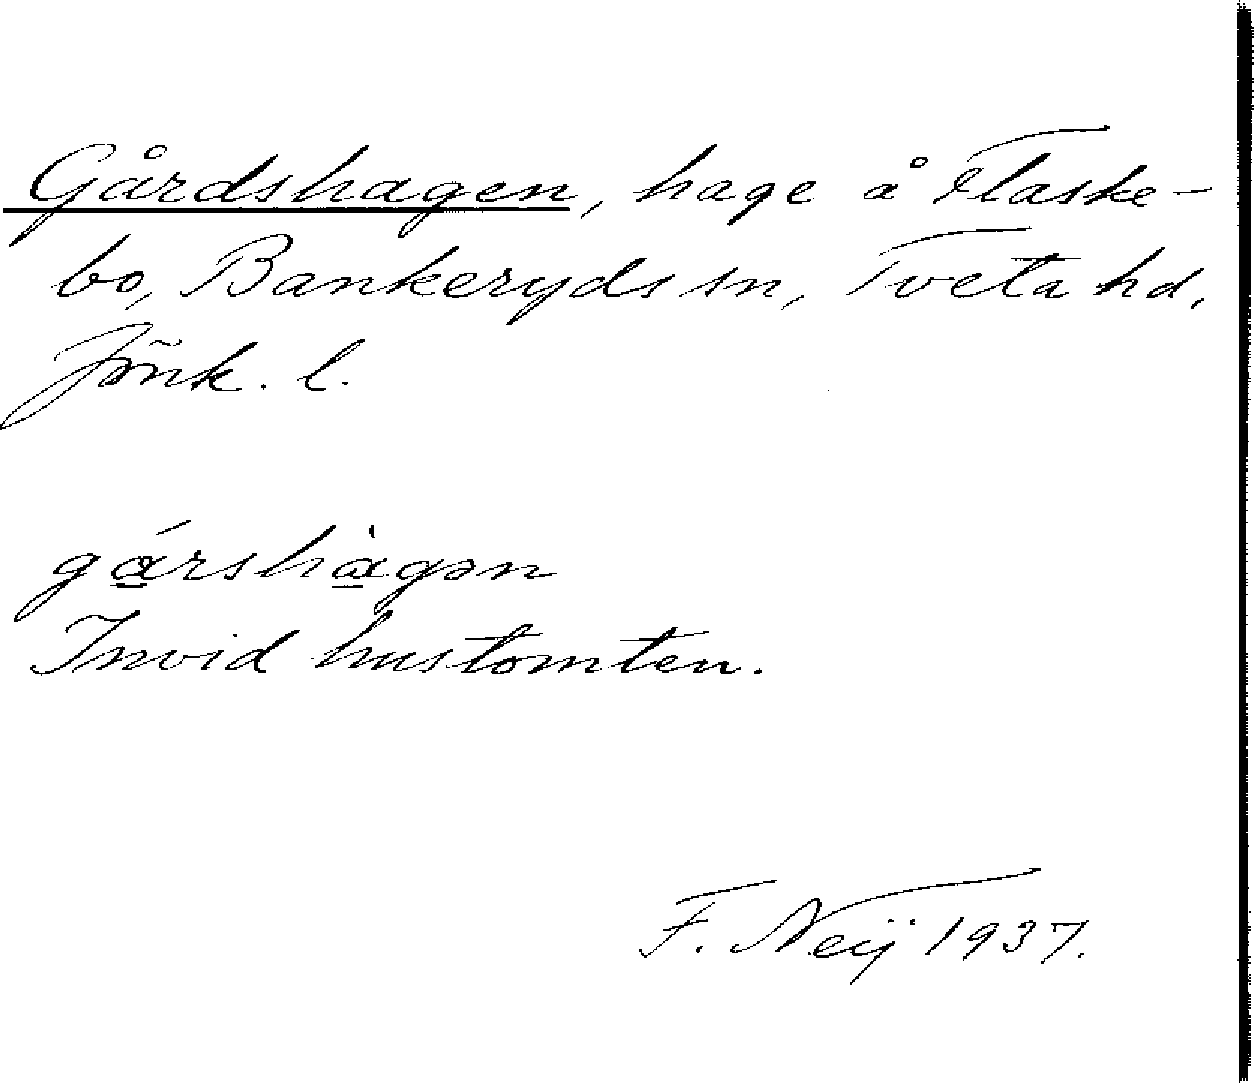 Gårdshagen, hage å Flaske-
bo, Bankeryds sn, Tveta hd,
Jönk. l.
gά̲rshὰ̲gən
Invid hustomten.
F. Neij 1937.